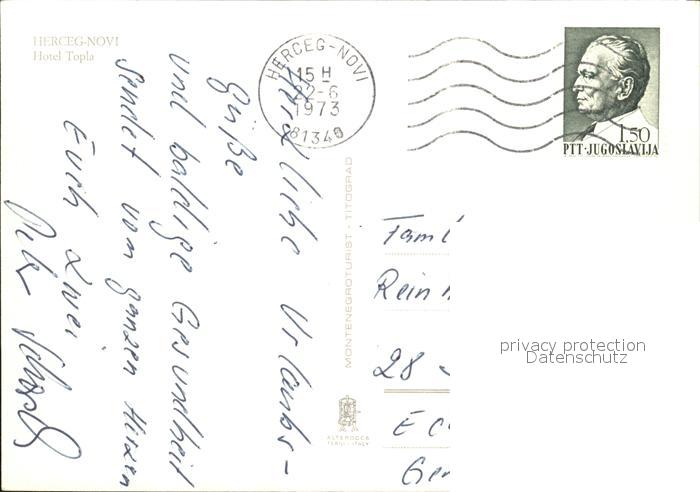 HERCEG-NOVI
Hotel Topla
HERCEG-NOVI
15 H
22-6
1973
81340
1.50
PTT·JUGOSLAVIJA
Herzliche Urlaubs-
Grüße
und baldige Gesundheit
sendet vom ganzen Herzen
Euch zwei
MONTENEGROTURIST - TITOGRAD
ALTEROCCA
TERNI - ITALY
Fam
Rein
28
privacy protection
Datenschutz